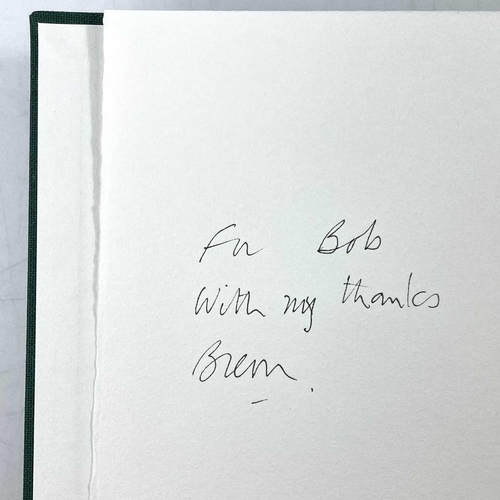 For Bob
With my thanks